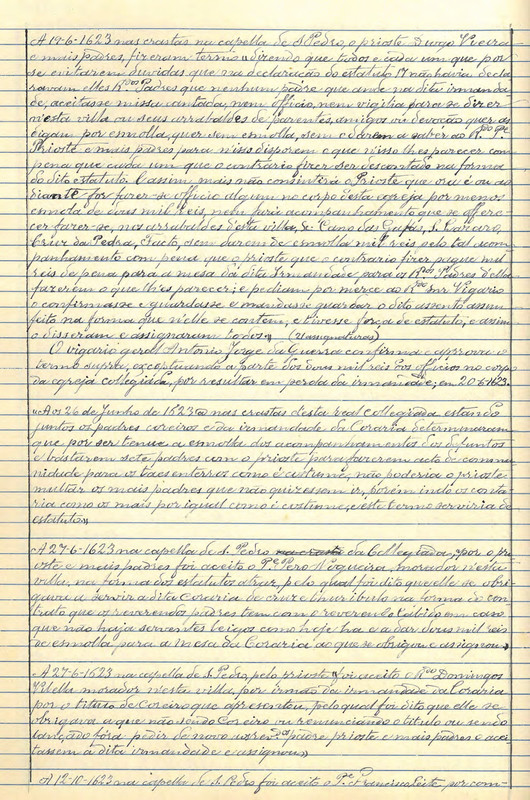 A 19-6-1623 nas crastas na capella de S. Pedro, o prioste Diogo Vieira
e mais padres, fizeram termo "dizendo que todos e cada um que por
se evitarem duvidas que na declaração do estatuto 17 não havia decla
ravam elles R.dos Padres que nenhum padre que ande na dita irmanda
de, aceitasse missa cantada, nem officio, nem vigilia para se dizer
n'esta villa ou seus arrabaldes de parentes, amigos ou devoção quer as
digam por esmolla, quer sem esmolla, sem o darem a saber ao R.do P.e
Prioste e mais padres para n'isso disporem o que n'isso lhes parecer com
pena que cada um que o contrario fizer ser descontado na forma
do dito estatuto. E assim mais não consintirá o Prioste que ora é ou ao
diante fôr fazer-se officio algum no corpo desta egreja por menos
esmola de dous mil reis, nem fazer acompanhamento que se offere-
cer fazer-se, nos arrabaldes desta villa, S.
Cruz da Pedra, sem darem de esmolla mil reis pelo tal acom-
panhamento com pena que o prioste que o contrario fizer pague mil
reis de pena para a mesa da dita Irmandade para os R.dos Padres d'ella
fazerem o que lhes parecer; e pediam por merce ao R.do Snr. Vigario
o confirmasse e guardasse e mandasse guardar o dito assento assim
feito na forma que n'elle se contem, e tivesse força de estatuto, e assim
o disseram e assignaram todos" (Assignaturas)
O vigario geral Antonio Jorge da Guerra confirma e approva o
termo supra, exceptuando a parte dos dous mil reis dos officios no corpo
da egreja collegiada, por resultar em perda da irmandade; em 20-6-1623.
"Aos 26 de Junho de 1623 @ nas crastas desta real collegiada estando
juntos os padres coreiros e da irmandade da Coraria determinaram
que por ser tenue a esmolla dos acompanhamentos dos defuntos
e bastarem sete padres com o prioste para fazerem acto de commu
nidade para os taes enterros como é custume, não poderia o prioste
multar os mais padres que não quizessem ir, porém indo os conta
ria como os mais por igual como é custume, e este termo serviria de
estatuto"
A 27-6-1623 na capella de S. Pedro da Collegiada, "por o pri-
oste e mais padres foi aceito o P.e Pero Nogueira, morador n'esta
villa, na forma dos estatutos atraz, pelo qual foi dito que elle se obri-
gava a servir a dita Coraria de cruz e thuribulo na forma do con-
trato que os reverendos padres tem com o reverendo Cabido em caso
que não haja serventes leigos como hoje ha e a dar dous mil reis
de esmolla para a mesa da Coraria ao que se obrigou e assignou"
A 27-6-1623 na capella de S. Pedro, pelo prioste "foi aceito o R.do Domingos
Vilella morador n'esta villa, por irmão da irmandade da Coraria
por o titulo de Coreiro que apresentou, pelo qual foi dito que elle se
obrigava a que não sendo Coreiro ou renunciando o titulo ou sendo
lançado fóra pedir de novo aos rever.dos padre prioste e mais padres o acei-
tassem á dita irmandade e assignou"
A 12-10-1623 na capella de S. Pedro foi aceito o P.e Francisco Leite, por com-